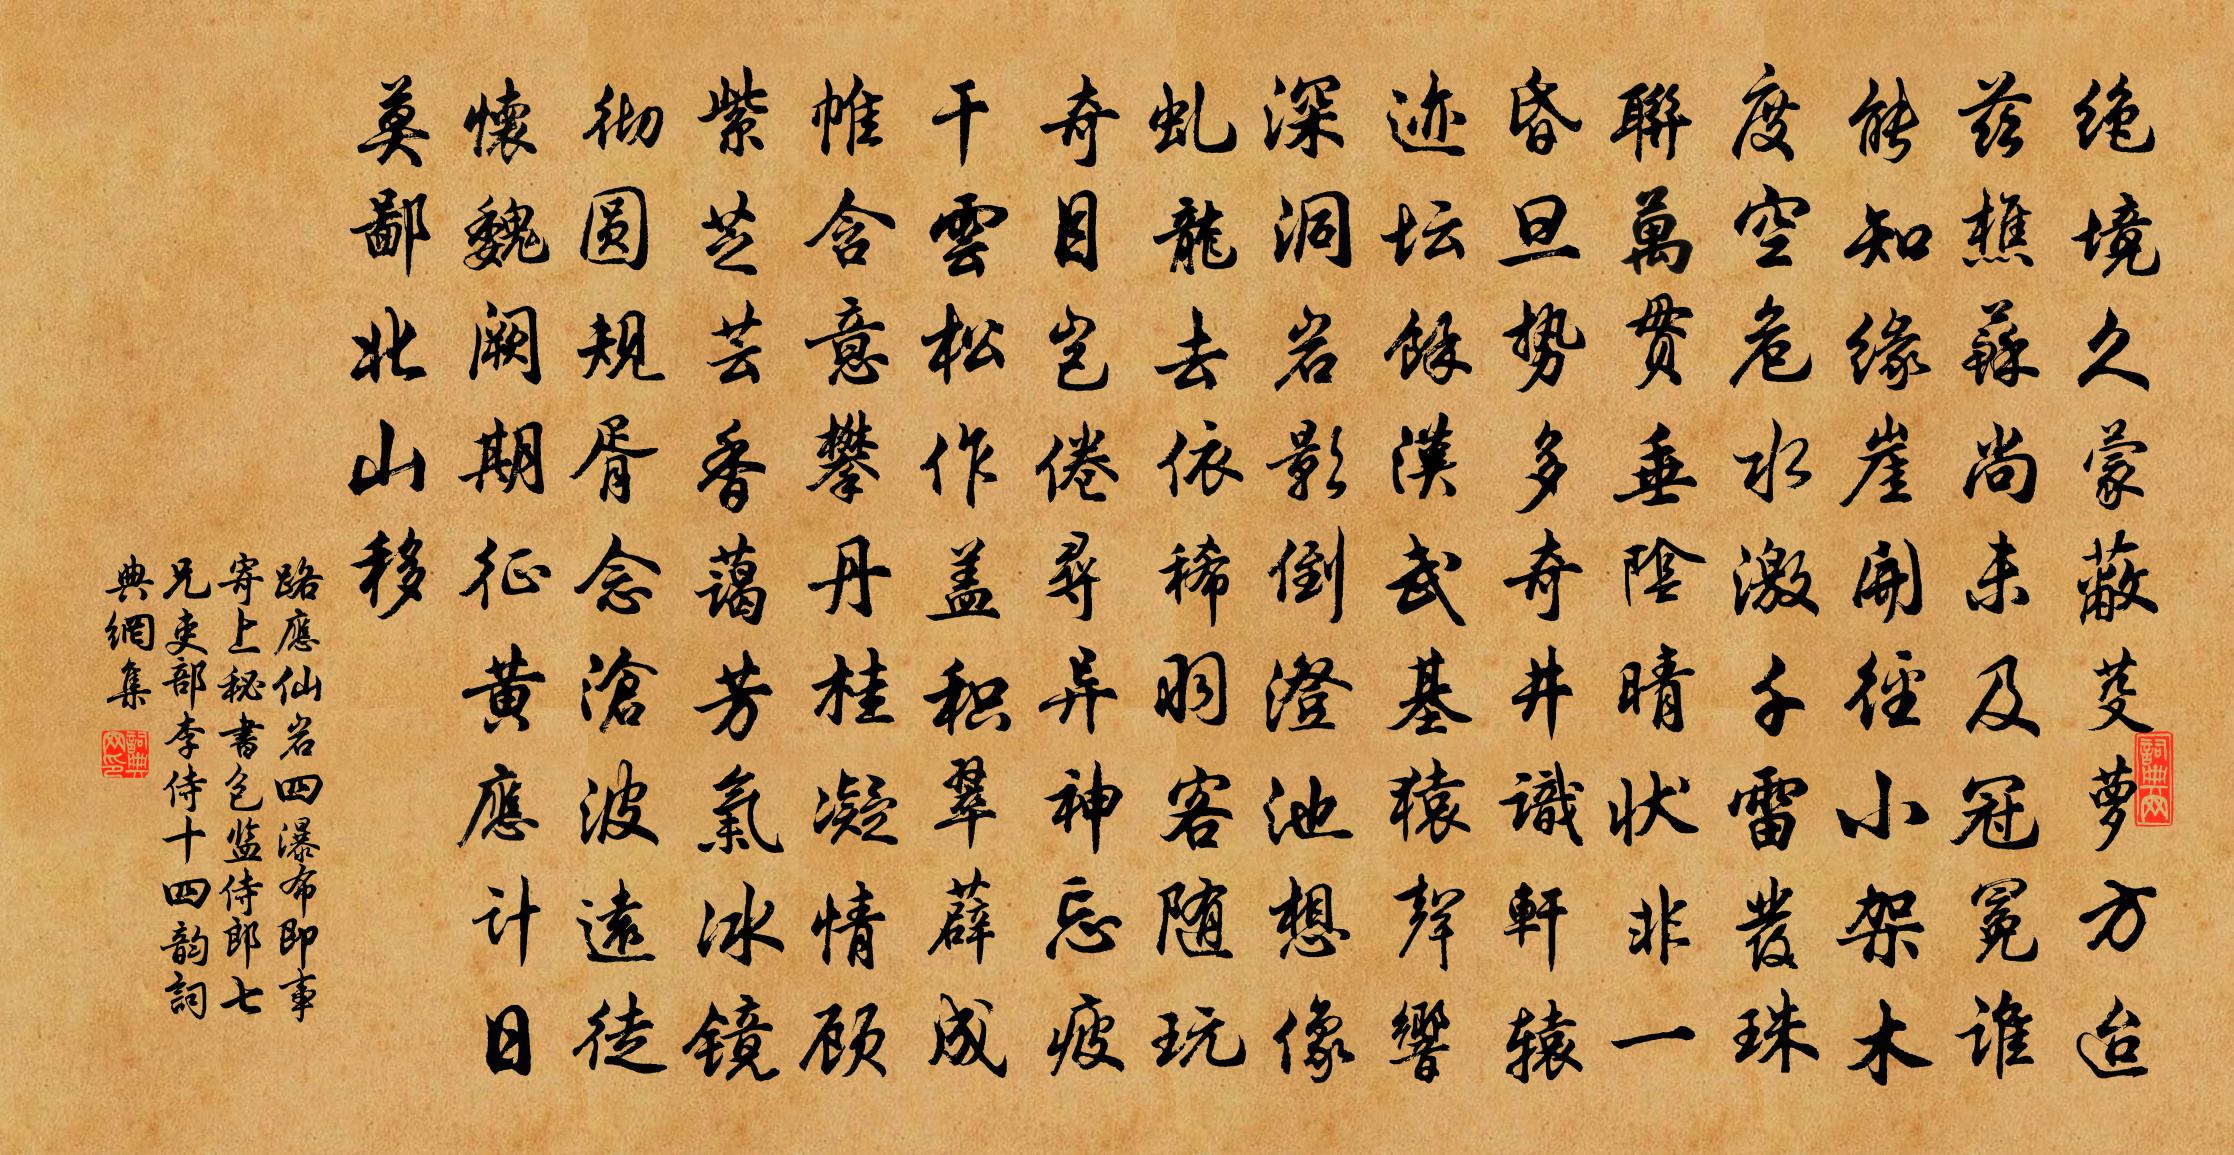 绝境久蒙蔽芟萝方迨
兹樵蘇尚未及冠冕谁
能知缘崖開径小架木
度空危水激千雷發珠
聯萬贯垂陰晴状非一
昏旦势多奇井識軒辕
迹坛餘漢武基猿聲響
深洞岩影倒澄池想像
虬龍去依稀羽客随玩
奇目岂倦尋异神忘疲
干雲松作盖积翠薜成
帷含意攀丹桂凝情顾
紫芝芸香蔼芳氣冰镜
彻圆规胥念滄波遠徒
懷魏阙期征黄應计日
莫鄙北山移
路應仙岩四瀑布即事
寄上秘書包监侍郎七
兄吏部李侍十四韵詞
典網集
詞典网
詞典网印